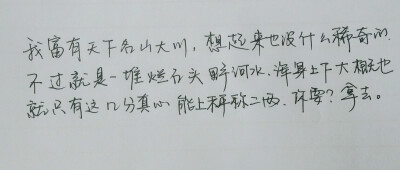 我富有天下名山大川，想起来也没什么稀奇的.
不过就是一堆烂石头野河水.浑身上下大概也
就只有这几分真心能上秤称二两.你要？拿去。